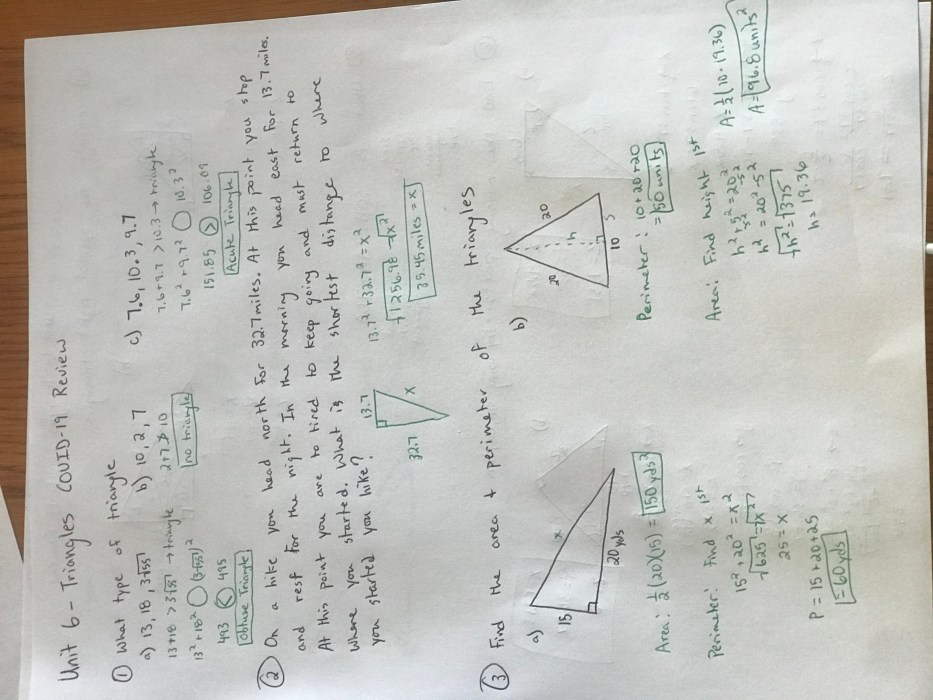 Unit 6 - Triangles COVID-19 Review
① What type of triangle
a) 13, 18, 3√55
13+18 > 3√55 → triangle
13² + 18² ◯ (3√55)²
493 < 495
Obtuse Triangle
b) 10, 2, 7
2+7 ≯ 10
no triangle
c) 7.6, 10.3, 9.7
7.6+9.7 > 10.3 → triangle
7.6² + 9.7² ◯ 10.3²
151.85 > 106.09
Acute Triangle
② On a hike you head north for 32.7 miles. At this point you stop
and rest for the night. In the morning you head east for 13.7 miles.
At this point you are to tired to keep going and must return to
where you started. What is the shortest distance to where
you started you hike?
13.7
32.7
x
13.7² + 32.7² = x²
√1256.98 = √x²
35.45 miles = x
③ Find the area + perimeter of the triangles
a)
15
x
20 yds
Area: ½(20)(15) = 150 yds²
Perimeter: Find x 1st
15² + 20² = x²
√625 = √x²
25 = x
P = 15+20+25
= 60 yds
b)
20
20
h
10
5
Perimeter: 10+20+20
= 50 units
Area: Find height 1st
h² + 5² = 20²
-5² -5²
h² = 20² - 5²
√h² = √375
h = 19.36
A = ½(10 · 19.36)
A = 96.8 units²